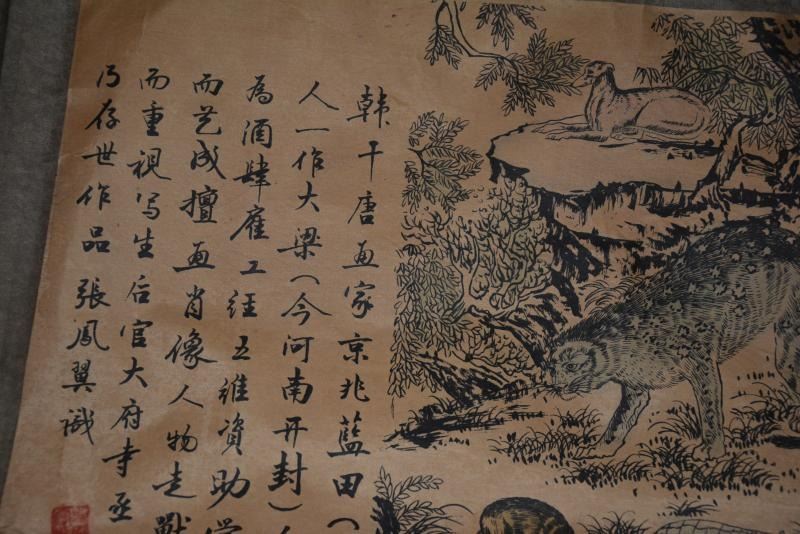 韩干唐画家京兆藍田（
人一作大梁（今河南开封）
為酒肆雇工经王維資助学
而艺成擅画肖像人物走獸
而重視写生后官大府寺丞
乃存世作品張鳳翼識